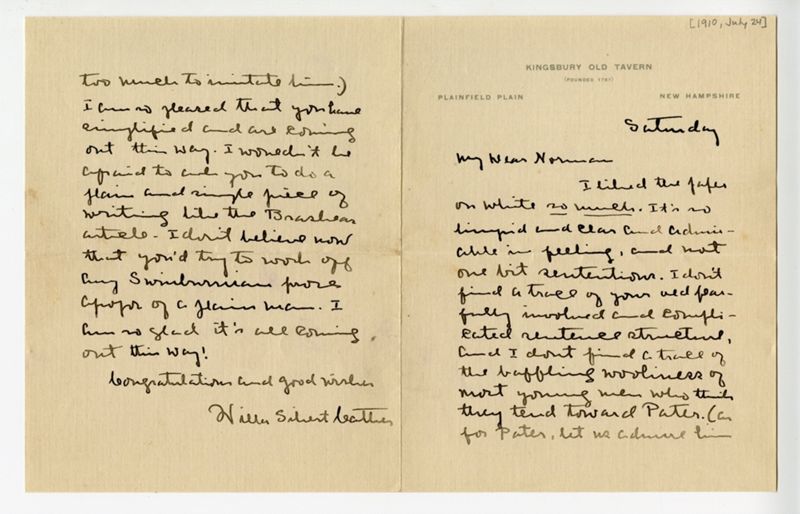 [1910, July 24]
KINGSBURY OLD TAVERN
(FOUNDED 1791)
PLAINFIELD PLAIN
NEW HAMPSHIRE
Saturday
My Dear Norman
I liked the paper
on White so much. It's so
limpid and clear and admir-
able in feeling, and not
one bit sententious. I don't
find a trace of your old fear-
fully involved and compli-
cated sentence structure,
and I don't find a trace of
the baffling wooliness of
most young men who think
they tend toward Pater. (as
for Pater, let us admire him
too much to imitate him.)
I am so pleased that you have
simplified and are coming
out this way. I wouldn't be
afraid to ask you to do a
plain and simple piece of
writing like the Brashear
article. I don't believe now
that you'd try to work off
any Swinburnian prose
apropos of a plain man. I
am so glad it's all coming
out this way!
Congratulations and good wishes
Willa Sibert Cather